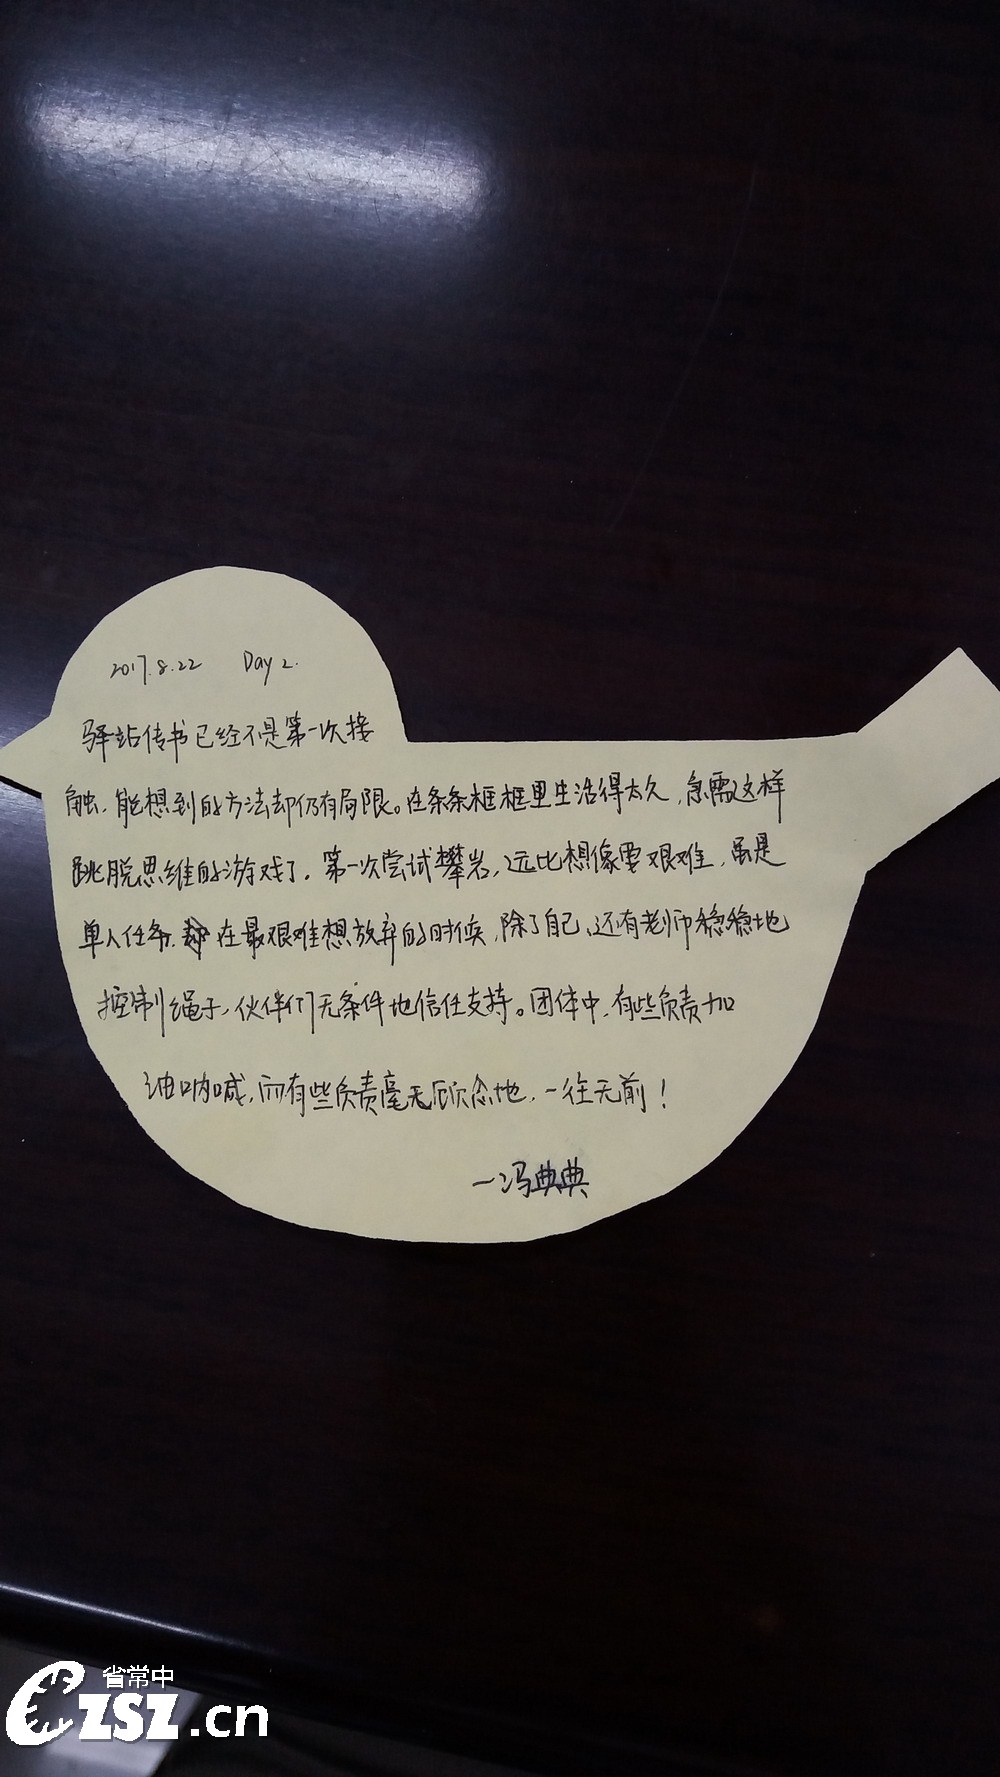 2017.8.22 Day 2.
驿站传书已经不是第一次接
触,能想到的方法却仍有局限。在条条框框里生活得太久,急需这样
跳脱思维的游戏了。第一次尝试攀岩,远比想像要艰难,虽是
单人任务,却在最艰难想放弃的时候,除了自己,还有老师稳稳地
控制绳子,伙伴们无条件地信任支持。团体中,有些负责加
油呐喊,而有些负责毫无顾念地,一往无前!
—冯典典
省常中
CZSZ.cn